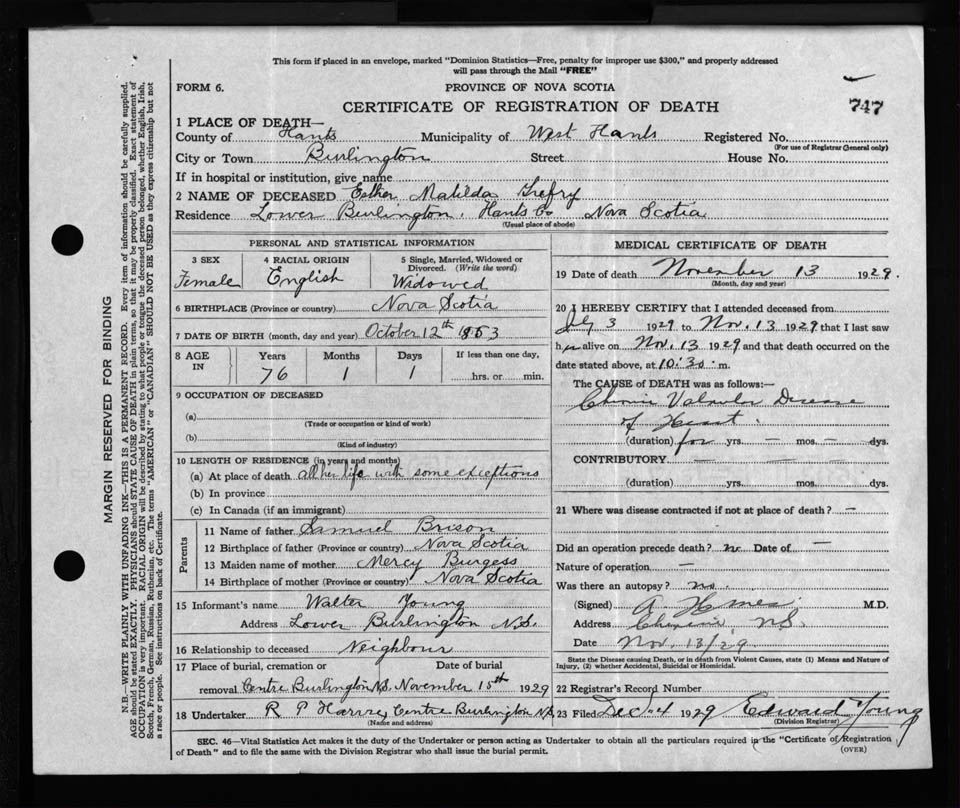 This form if placed in an envelope, marked "Dominion Statistics—Free, penalty for improper use $300," and properly addressed
will pass through the Mail "FREE"
FORM 6.
PROVINCE OF NOVA SCOTIA
CERTIFICATE OF REGISTRATION OF DEATH
747
1 PLACE OF DEATH—
County of Hants Municipality of West Hants Registered No.
(For use of Registrar General only)
City or Town Burlington Street House No.
If in hospital or institution, give name
2 NAME OF DECEASED Esther Matilda Trefry
Residence Lower Burlington, Hants Co Nova Scotia
(Usual place of abode)
PERSONAL AND STATISTICAL INFORMATION
3 SEX Female
4 RACIAL ORIGIN English
5 Single, Married, Widowed or Divorced. (Write the word) Widowed
6 BIRTHPLACE (Province or country) Nova Scotia
7 DATE OF BIRTH (month, day and year) October 12th 1853
8 AGE IN Years 76 Months 1 Days 1 If less than one day, hrs. or min.
9 OCCUPATION OF DECEASED
(a)
(Trade or occupation or kind of work)
(b)
(Kind of industry)
10 LENGTH OF RESIDENCE (in years and months)
(a) At place of death all her life with some exceptions
(b) In province
(c) In Canada (if an immigrant)
Parents
11 Name of father Samuel Brison
12 Birthplace of father (Province or country) Nova Scotia
13 Maiden name of mother Mercy Burgess
14 Birthplace of mother (Province or country) Nova Scotia
15 Informant's name Walter Young
Address Lower Burlington N.S.
16 Relationship to deceased Neighbour
17 Place of burial, cremation or Date of burial
removal Centre Burlington N.S. November 15th 1929
18 Undertaker R P Harvey Centre Burlington N.S.
(Name and address)
MEDICAL CERTIFICATE OF DEATH
19 Date of death November 13 1929.
(Month, day and year)
20 I HEREBY CERTIFY that I attended deceased from
July 3 1929 to Nov. 13 1929 that I last saw
her alive on Nov. 13 1929 and that death occurred on the
date stated above, at 10:30 m.
The CAUSE OF DEATH was as follows:—
Chronic Valvular Disease
of Heart.
(duration) for yrs. — mos. — dys.
CONTRIBUTORY — —
(duration) yrs. mos. dys.
21 Where was disease contracted if not at place of death? —
Did an operation precede death? no Date of —
Nature of operation —
Was there an autopsy? no.
(Signed) A. M.D.
Address N.S.
Date Nov. 13/29
State the Disease causing Death, or in death from Violent Causes, state (1) Means and Nature of
Injury, (2) whether Accidental, Suicidal or Homicidal.
22 Registrar's Record Number
23 Filed Dec. 4 1929 Edward Young
(Division Registrar)
SEC. 46—Vital Statistics Act makes it the duty of the Undertaker or person acting as Undertaker to obtain all the particulars required in the "Certificate of Registration
of Death" and to file the same with the Division Registrar who shall issue the burial permit.
(OVER)
MARGIN RESERVED FOR BINDING
N.B.—WRITE PLAINLY WITH UNFADING INK—THIS IS A PERMANENT RECORD. Every item of information should be carefully supplied.
AGE should be stated EXACTLY. PHYSICIANS should STATE CAUSE OF DEATH in plain terms, so that it may be properly classified. Exact statement of
OCCUPATION is very important. RACIAL ORIGIN will be described by stating to what people or tongue the deceased person belonged, whether English, Irish,
Scotch, French, German, Russian, Ruthenian, etc. The terms "AMERICAN" or "CANADIAN" SHOULD NOT BE USED as they express citizenship but not
a race or people. See instructions on back of Certificate.